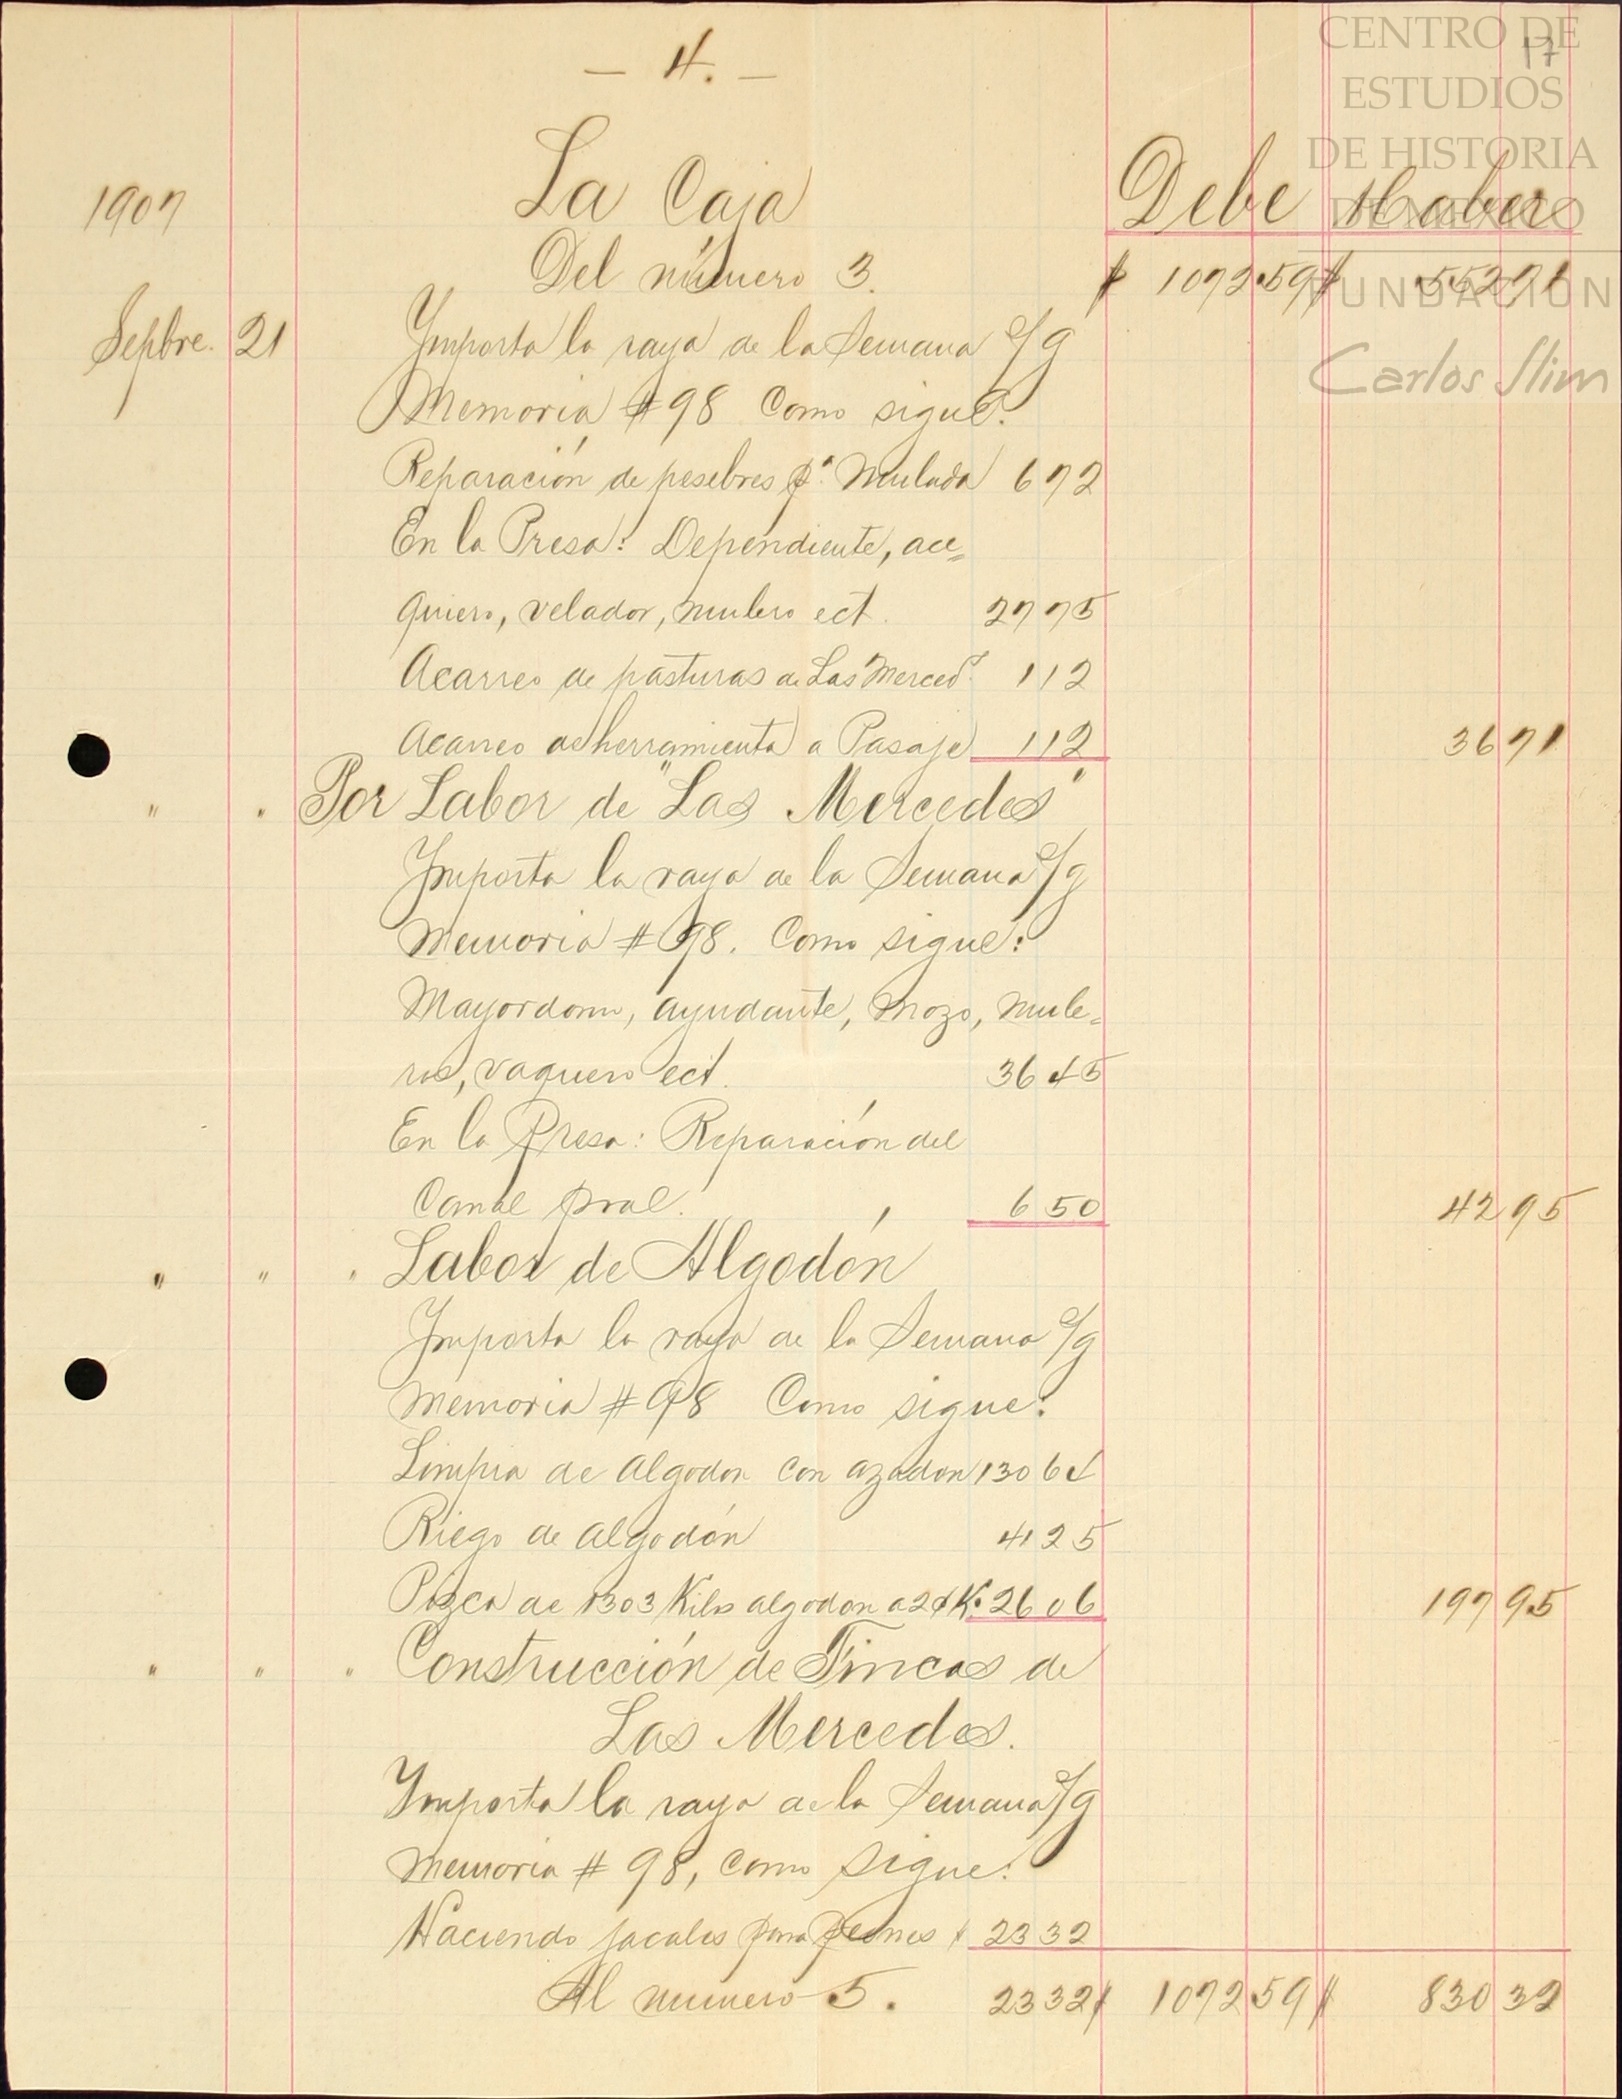 - 4. -
17
CENTRO DE
ESTUDIOS
DE HISTORIA
DE MEXICO
FUNDACIÓN
Carlos Slim
1907 La Caja Debe Haber
Del número 3. $ 1072 59 $ 552 71
Sepbre. 21 Importa la raya de la Semana s/g
Memoria #98 Como sigue:
Reparación de pesebres pª. Mulada 6 72
En la Presa: Dependiente, ace=
quiero, velador, mulero ect. 27 75
Acarreo de pasturas de Las Merced.s 1 12
Acarreo de herramienta a Pasaje 1 12 36 71
" " Por Labor de "Las Mercedes"
Importa la raya de la Semana s/g
Memoria #98. Como sigue:
Mayordomo, ayudante, mozo, mule=
ros, vaquero ect. 36 45
En la Presa: Reparación del
Canal pral. 6 50 42 95
" " " Labor de Algodón
Importa la raya de la Semana s/g
Memoria #98 Como sigue:
Limpia de algodon con azadon 130 64
Riego de algodón 41 25
Pizca de 1303 Kilos algodon a 2¢ K. 26 06 197 95
" " " Construcción de Fincas de
Las Mercedes.
Importa la raya de la Semana s/g
Memoria # 98, como sigue:
Haciendo jacales para peones $ 23 32
Al numero 5. 23 32 $ 1072 59 $ 830 32